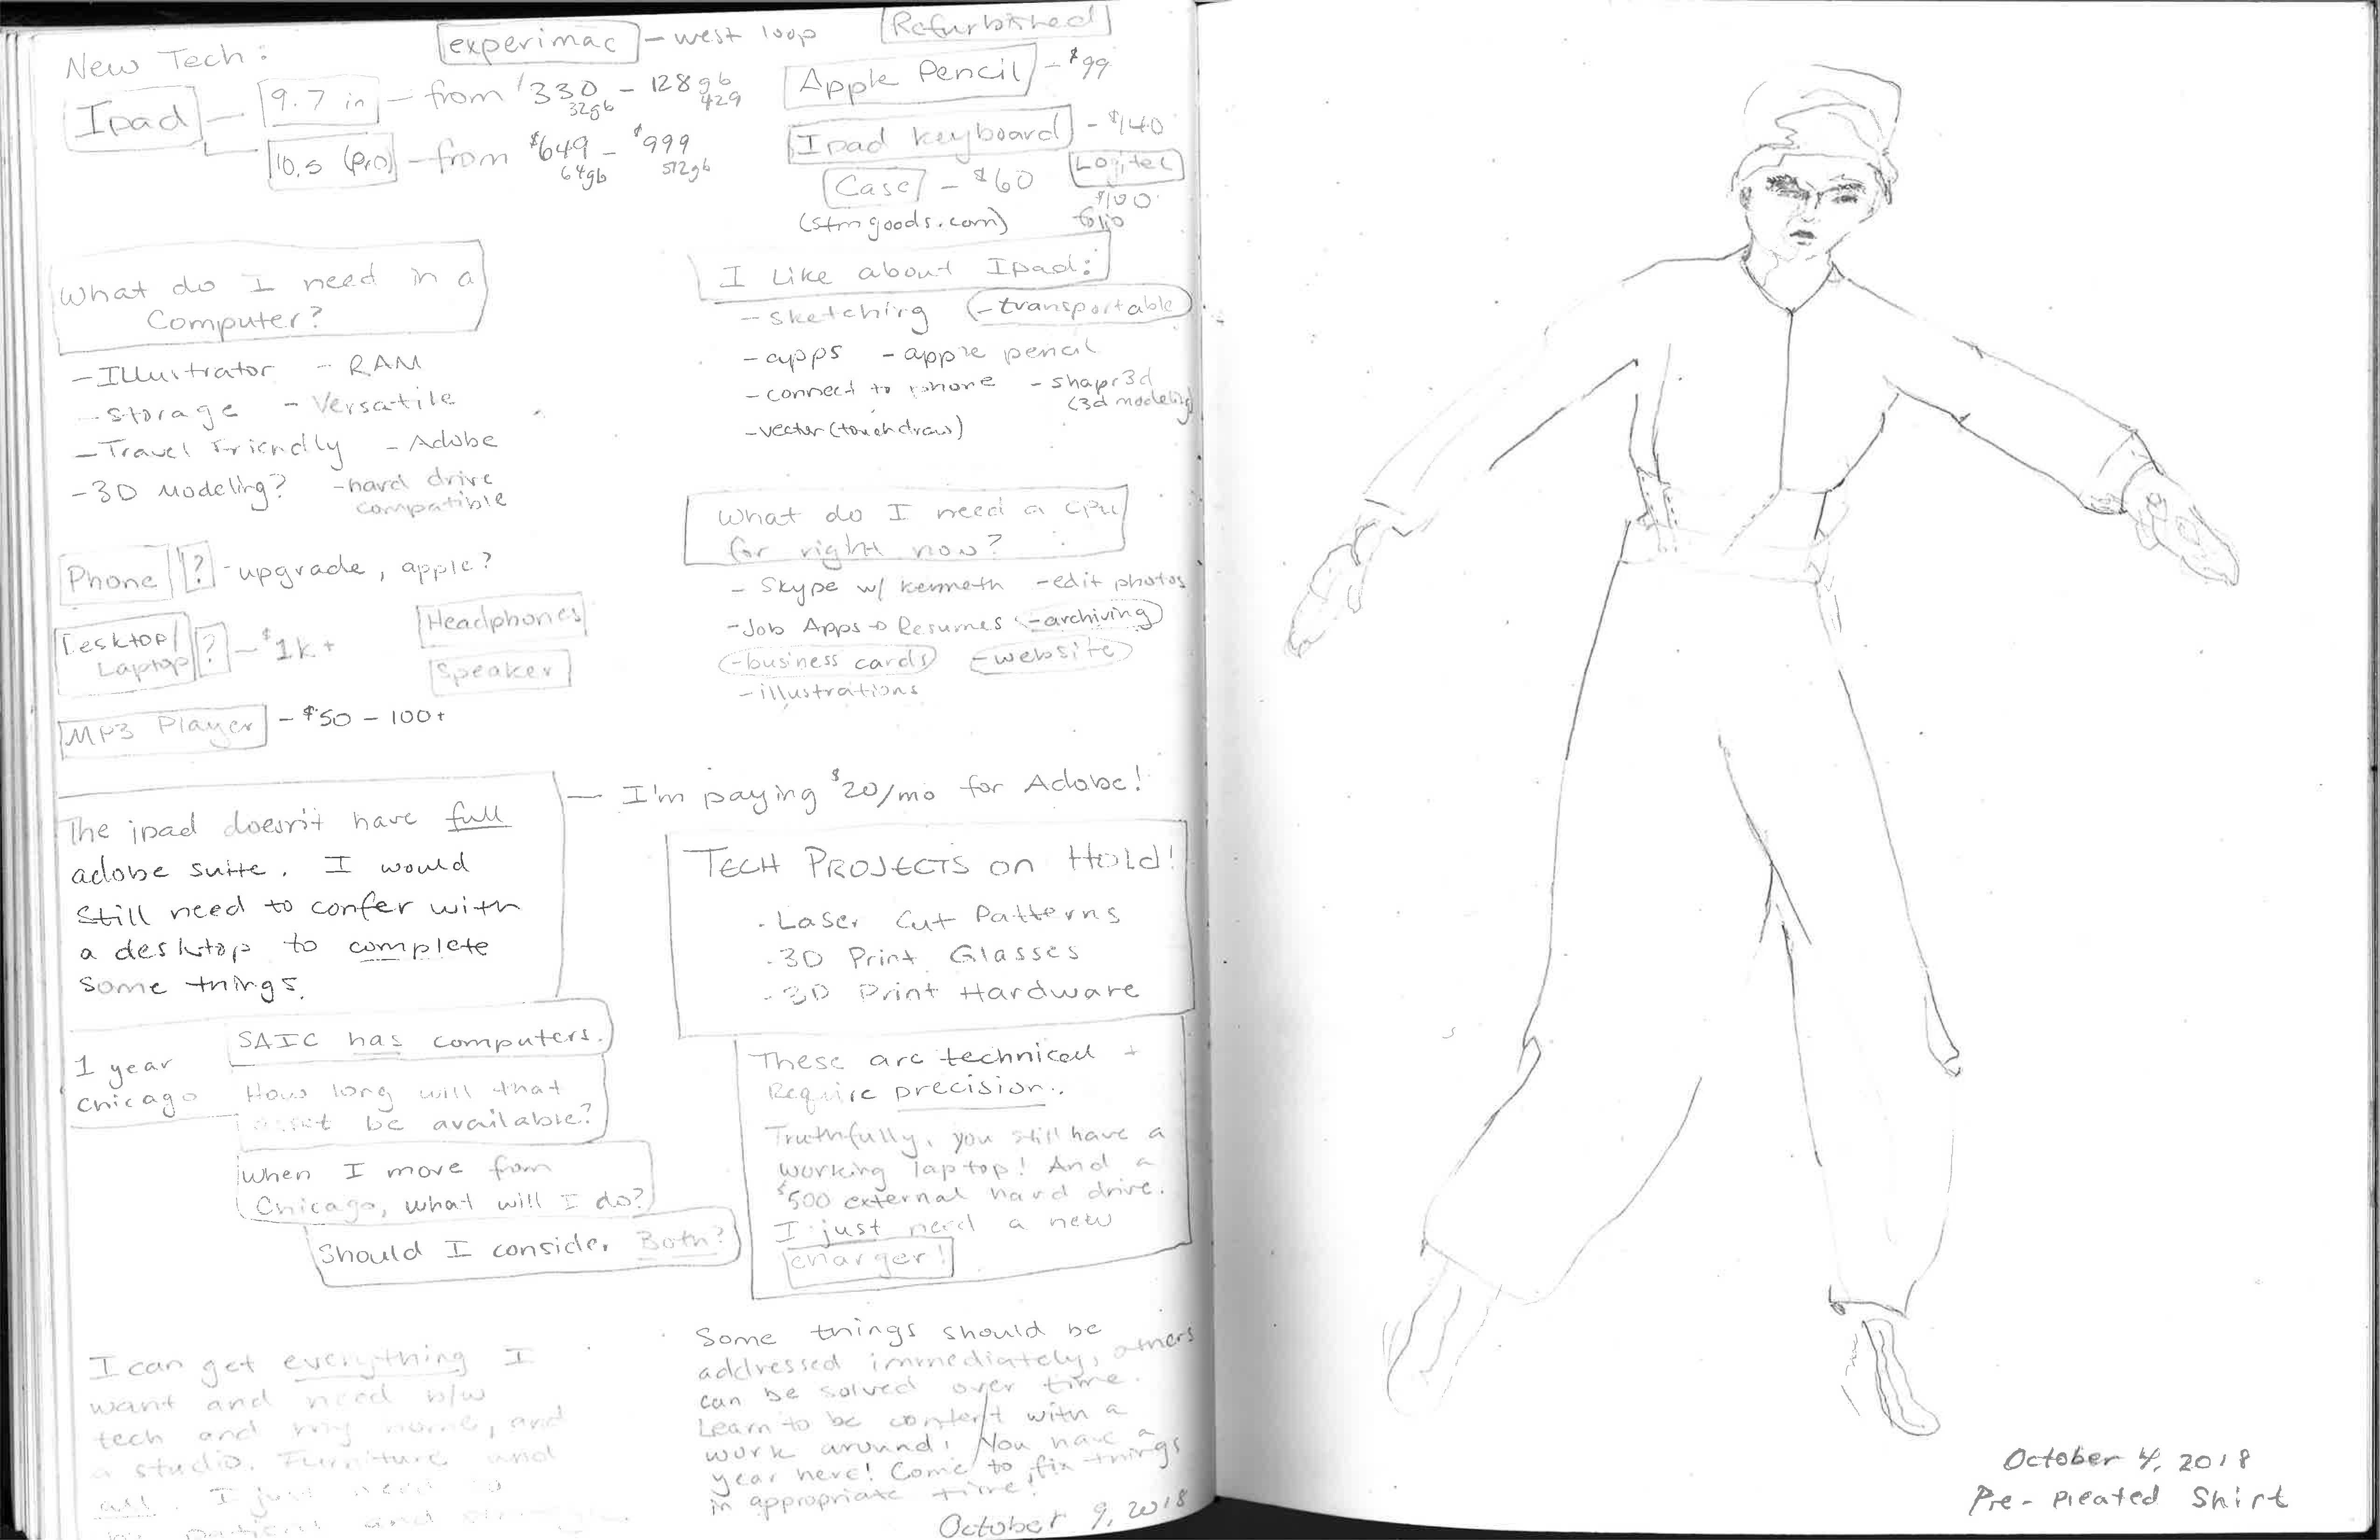 New Tech:
experimac - west loop
Refurbished
Ipad - 9.7 in - from $330 - 128gb
32gb 429
10.5 (Pro) - from $649 - $999
64gb 512gb
Apple Pencil - $99
Ipad keyboard - $140
Logitec
$100
folio
Case - $60
(stmgoods.com)
What do I need in a
Computer?
- Illustrator - RAM
- Storage - Versatile
- Travel Friendly - Adobe
- 3D Modeling? - hard drive
compatible
I Like about Ipad:
- sketching - transportable
- apps - apple pencil
- connect to phone - shapr3d
(3d modeling)
- vector (touch draw)
Phone ? - upgrade, apple?
Desktop/
Laptop ? - $1k+
Headphones
Speaker
MP3 Player - $50 - 100+
What do I need a CPU
for right now?
- Skype w/ Kenneth - edit photos
- Job Apps + Resumes - archiving
- business cards - website
- illustrations
The ipad doesn't have full
adobe suite. I would
still need to confer with
a desktop to complete
some things.
— I'm paying $20/mo for Adobe!
Tech Projects on Hold!
- Laser Cut Patterns
- 3D Print Glasses
- 3D Print Hardware
1 year
Chicago
SAIC has computers.
How long will that
asset be available?
When I move from
Chicago, what will I do?
Should I consider Both?
These are technical +
Require precision.
Truthfully, you still have a
working laptop! And a
$500 external hard drive.
I just need a new
charger!
I can get everything I
want and need b/w
tech and my home, and
a studio. Furniture and
all. I just need to
be patient and
Some things should be
addressed immediately, others
can be solved over time.
Learn to be content with a
work around! You have a
year here! Come to fix things
in appropriate time!
October 9, 2018
October 4, 2018
Pre-Pleated Shirt